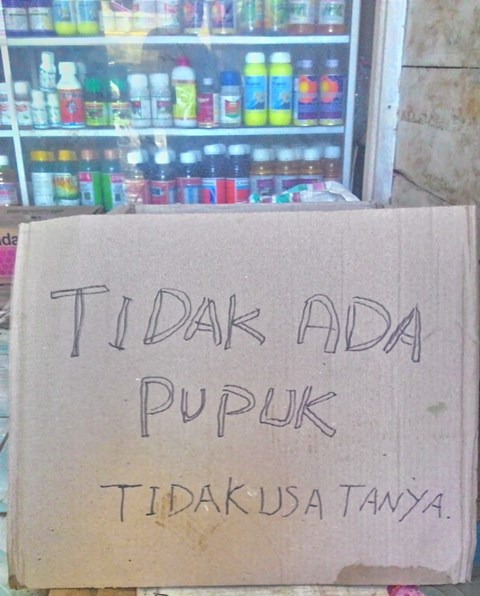 TIDAK ADA
PUPUK
TIDAK USA TANYA.